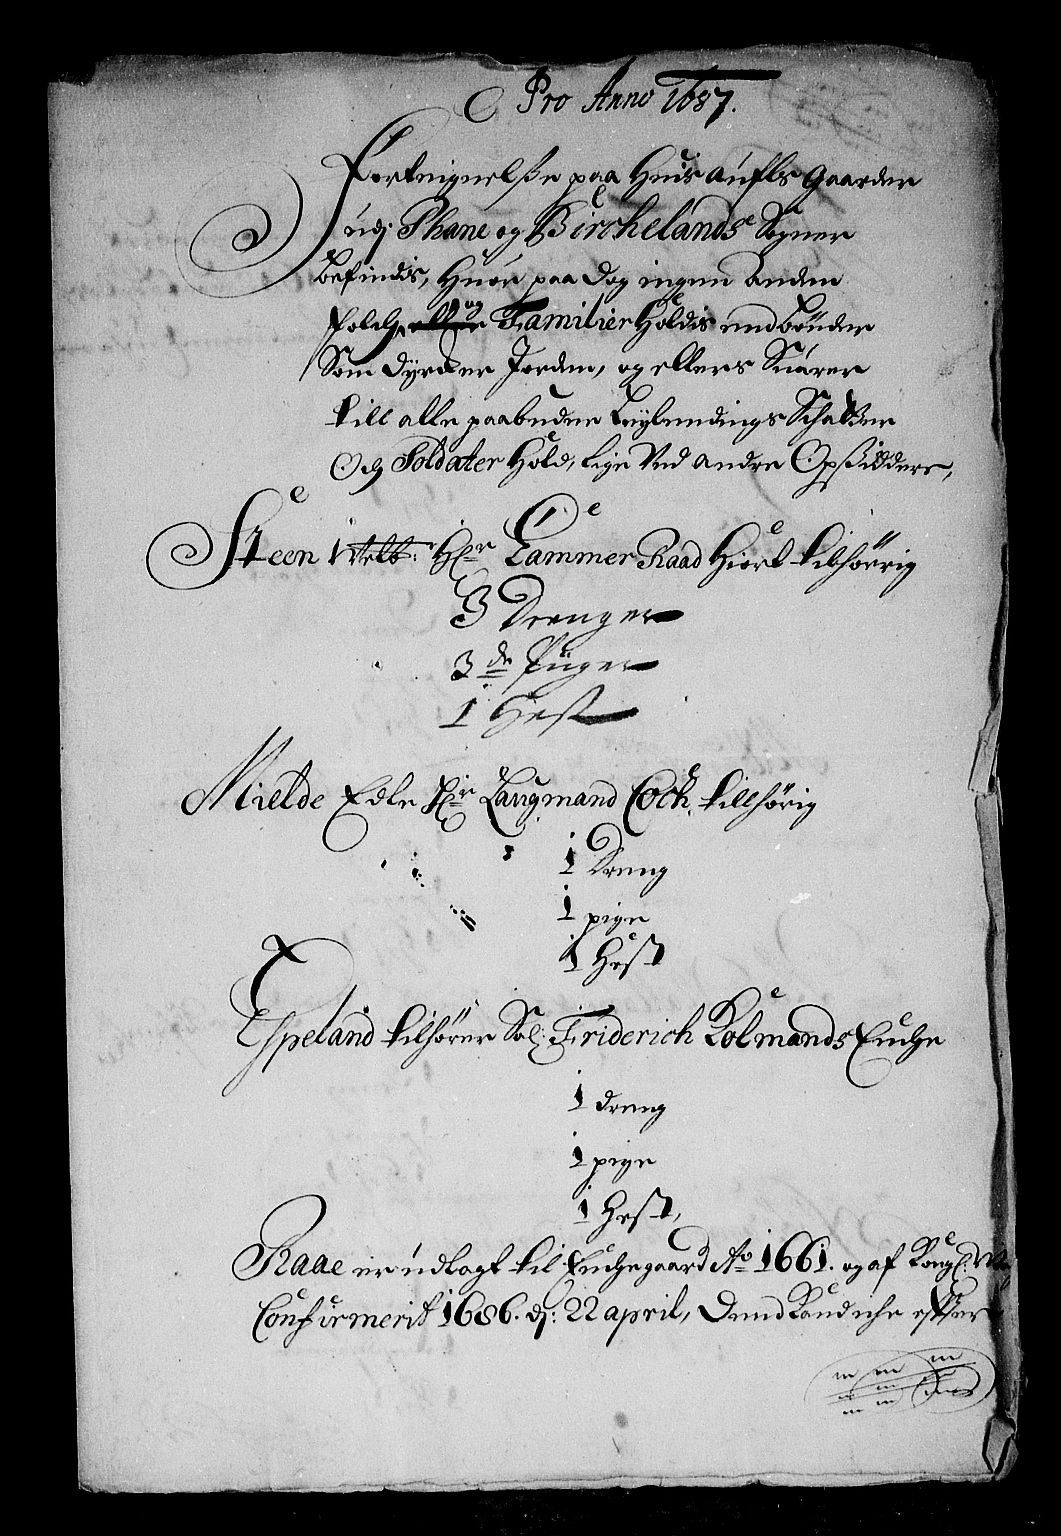 Pro Anno 1687.
Forteignelsse paa Huis aufls Gaarder
udj Phane og Birchelands Sogner
befindis, Huor paa dog ingen anden
folch, eller og Familier Holdis end bönder
Som dyrcker Jorden, og ellers Suarer
till alle paabudne Leylendings Schatter
Og Soldater Hold, lige Ved andre Opsiddere,
Steen Welb: Hr Cammer Raad Hiort tilhörrig
3 Drenger
3 de Piiger
1 Hest
Mielde Edle Hr Laugmand Cock tillhörig
1 Dreng
1 pige
1 Hest
Espeland tilhörer Sal: Friderich Kolmands Enche
1 dreng
1 pige
1 Hest,
Raae er udlagt til Enchegaard Ao 1661. og af Kongl:
Confirmerit 1686. dj: 22 april, Dend Raadiche effter